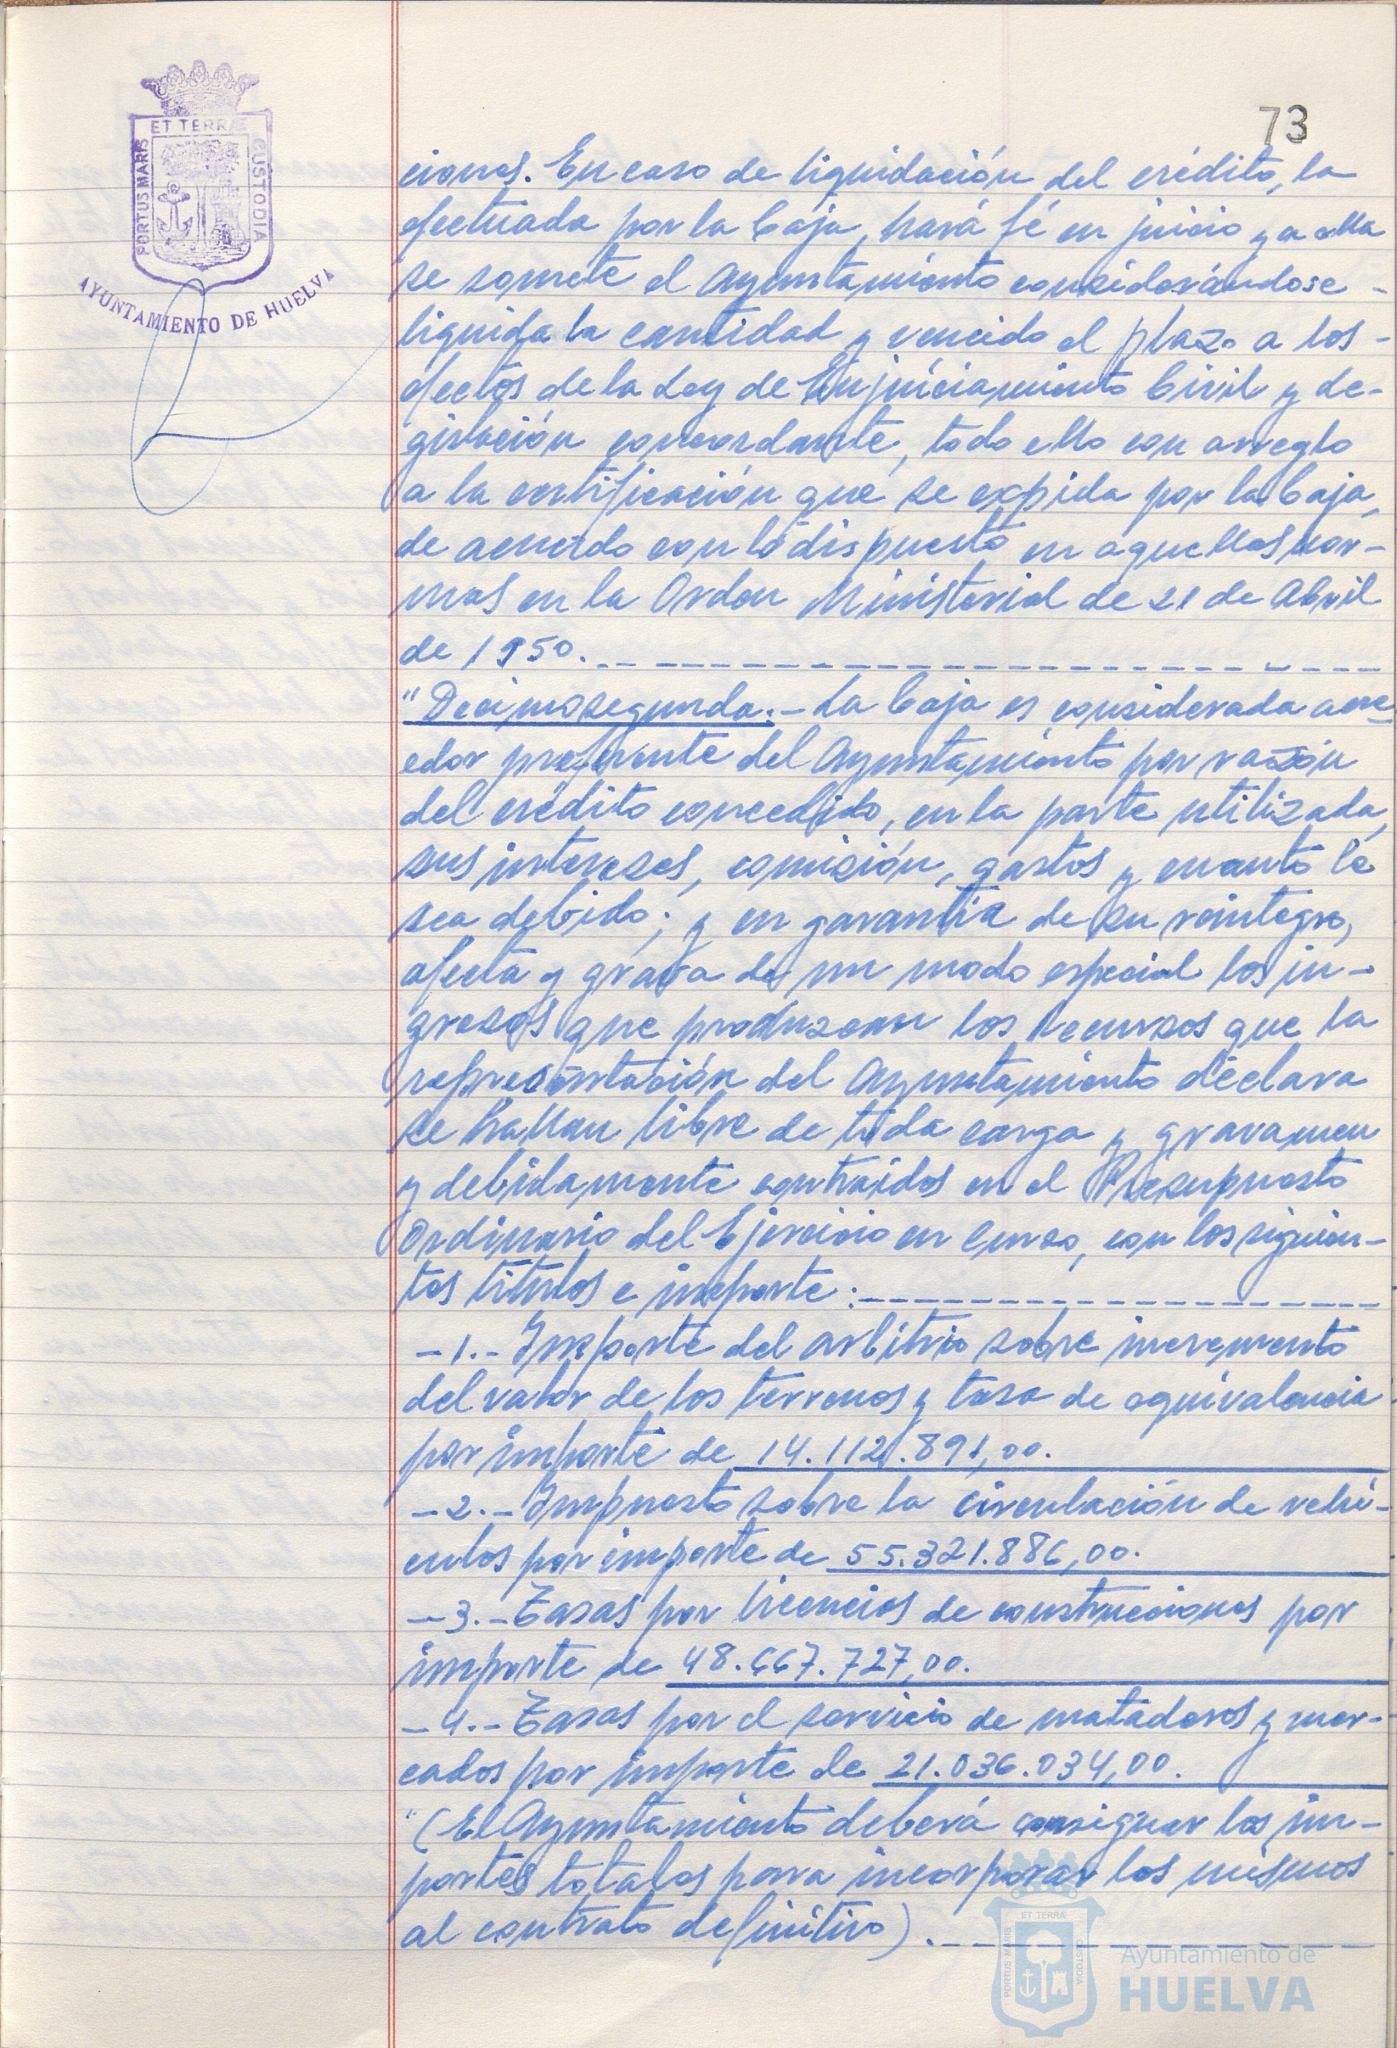 ET TERRÆ
PORTUS MARIS
CUSTODIA
AYUNTAMIENTO DE HUELVA
73
ciones. En caso de liquidación del crédito, la
efectuada por la Caja, hará fé en juicio y a ella
se somete el Ayuntamiento considerándose -
liquida la cantidad y vencido el plazo a los -
efectos de la Ley de Enjuiciamiento Civil y de-
gislación concordante, todo ello con arreglo
a la certificación que se expida por la Caja,
de acuerdo con lo dispuesto en aquellas nor-
mas en la Orden Ministerial de 21 de Abril
de 1950.
"Decimosegunda.- La Caja es considerada acre-
edor preferente del Ayuntamiento por razón
del crédito concedido, en la parte utilizada,
sus intereses, comisión, gastos y cuanto le
sea debido; y en garantía de su reintegro,
afecta y grava de un modo especial los in-
gresos que produzcan los Recursos que la
representación del Ayuntamiento declara
se hallan libre de toda carga y gravamen
y debidamente contraidos en el Presupuesto
Ordinario del Ejercicio en Curso, con los siguien-
tes títulos e importe:
-1.- Importe del arbitrio sobre incremento
del valor de los terrenos y tasa de equivalencia
por importe de 14.112.891,00.
-2.- Impuesto sobre la circulación de vehí-
culos por importe de 55.321.886,00.
-3.- Tasas por licencias de construcciones por
importe de 48.667.727,00.
-4.- Tasas por el servicio de mataderos y mer-
cados por importe de 21.036.034,00.
"(El Ayuntamiento deberá consignar los im-
portes totales para incorporar los mismos
al contrato definitivo).
ET TERRA
PORTUS MARIS
CUSTODIA
Ayuntamiento de
HUELVA